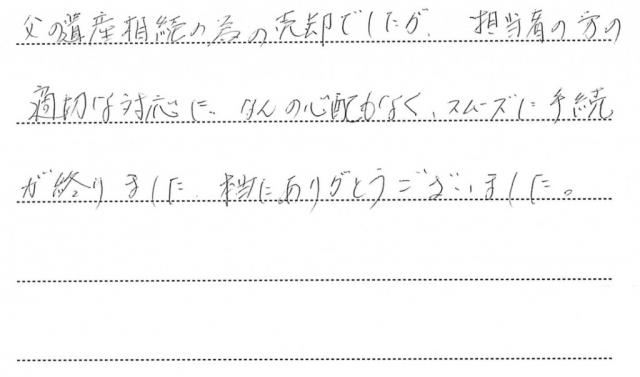 父の遺産相続の為の売却でしたが、担当者の方の
適切な対応に、なんの心配もなく、スムーズに手続
が終りました。本当にありがとうございました。